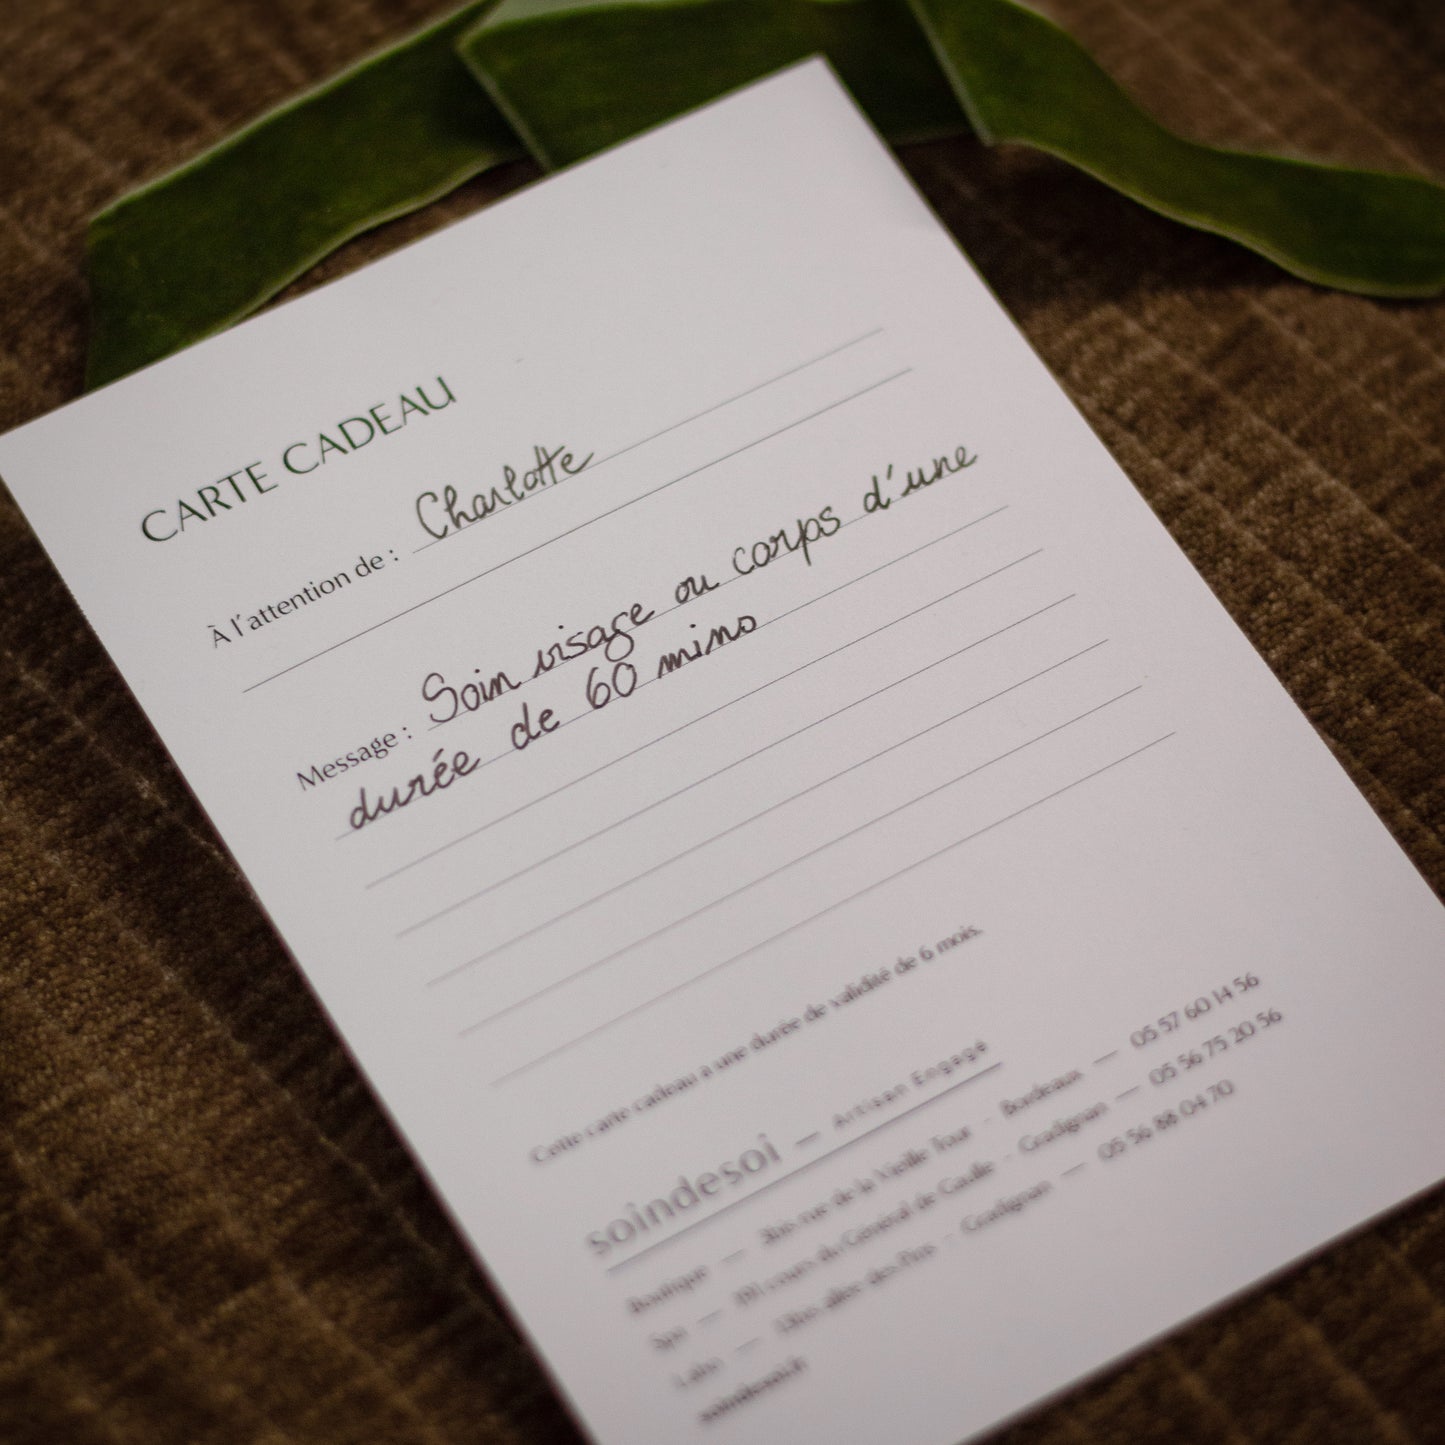 CARTE CADEAU
À l'attention de : Charlotte
Message : Soin visage ou corps d'une
durée de 60 mino
Cette carte cadeau a une durée de validité de 6 mois.
soindesoi — Artisan Engagé
Boutique — rue de la Vieille Tour - Bordeaux — 05 57 60 14 56
Spa — cours du Général de Gaulle - Gradignan — 05 56 75 20 56
Labo — allée des Pins - Gradignan — 05 56 88 04 70
soindesoi.fr